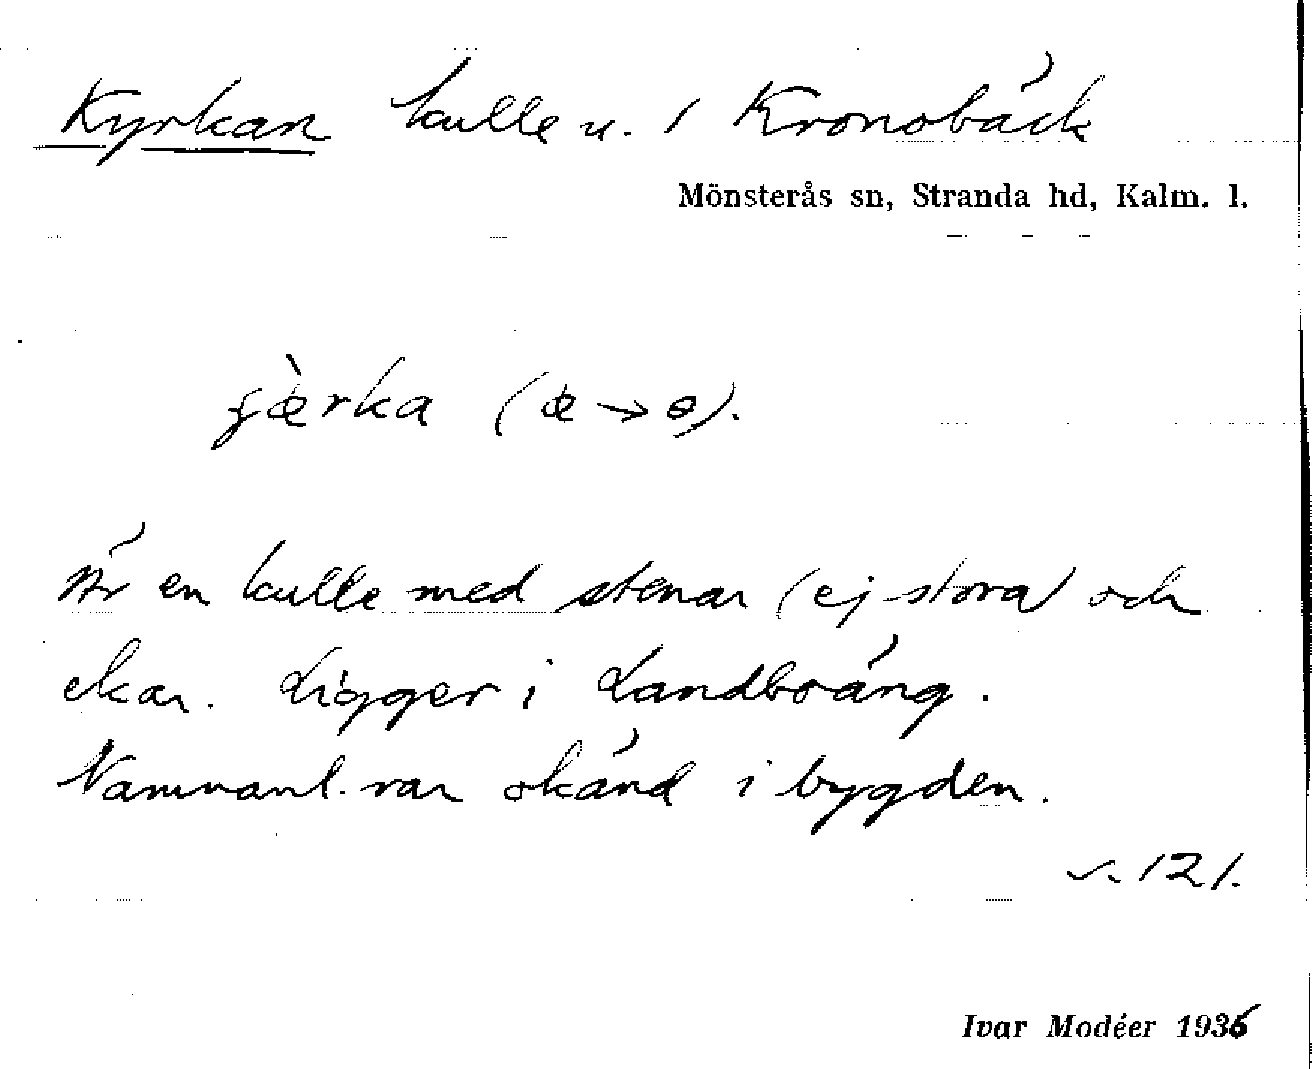 Kyrkan kulle u. / Kronobäck
Mönsterås sn, Stranda hd, Kalm. l.
ɟæ̀rka (æ → ɵ).
Är en kulle med stenar (ej stora) och
ekar. Ligger i Landboäng.
Namnanl. var okänd i bygden.
s. 121.
Ivar Modéer 1936